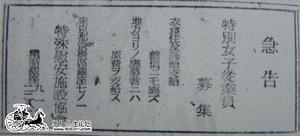 急告
特別女子従業員
募集
衣食住及高給支給
前借ニモ應ズ
地方ヨリノ應募者ニハ
旅費ヲ支給ス
東京都京橋區銀座七ノ一
特殊慰安施設協
電話銀座九